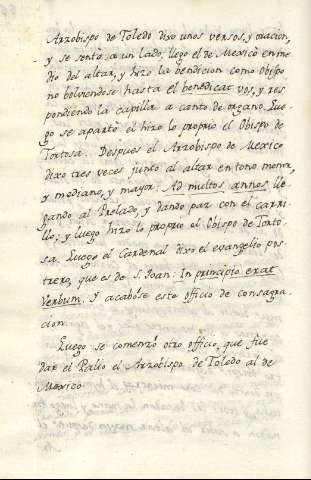 Arzobispo de Toledo dixo unos versos, y oracion,
y se sentò a un lado, llegò el de Mexico en me
dio del altar, y hizo la bendicion como obispo
no bolviendose hasta el benedicat vos, y res
pondiendo la capilla a canto de organo. Lue
go se apartò el hizo lo proprio el Obispo de
Tortosa. Despues el Arzobispo de Mexico
dixo tres veces junto al altar en tono menor,
y mediano, y mayor: Ad multos annos lle
gando al Prelado, y dando paz con el carri
llo; y luego hizo lo proprio el Obispo de Torto
sa. Luego el Cardenal dixo el evangelio pos
trero, que es de S. Joan: In principio erat
Verbum. Y acabòse este officio de consagra
cion.
Luego se comenzò otro officio, que fue
dar el Palio el Arzobispo de Toledo al de
Mexico